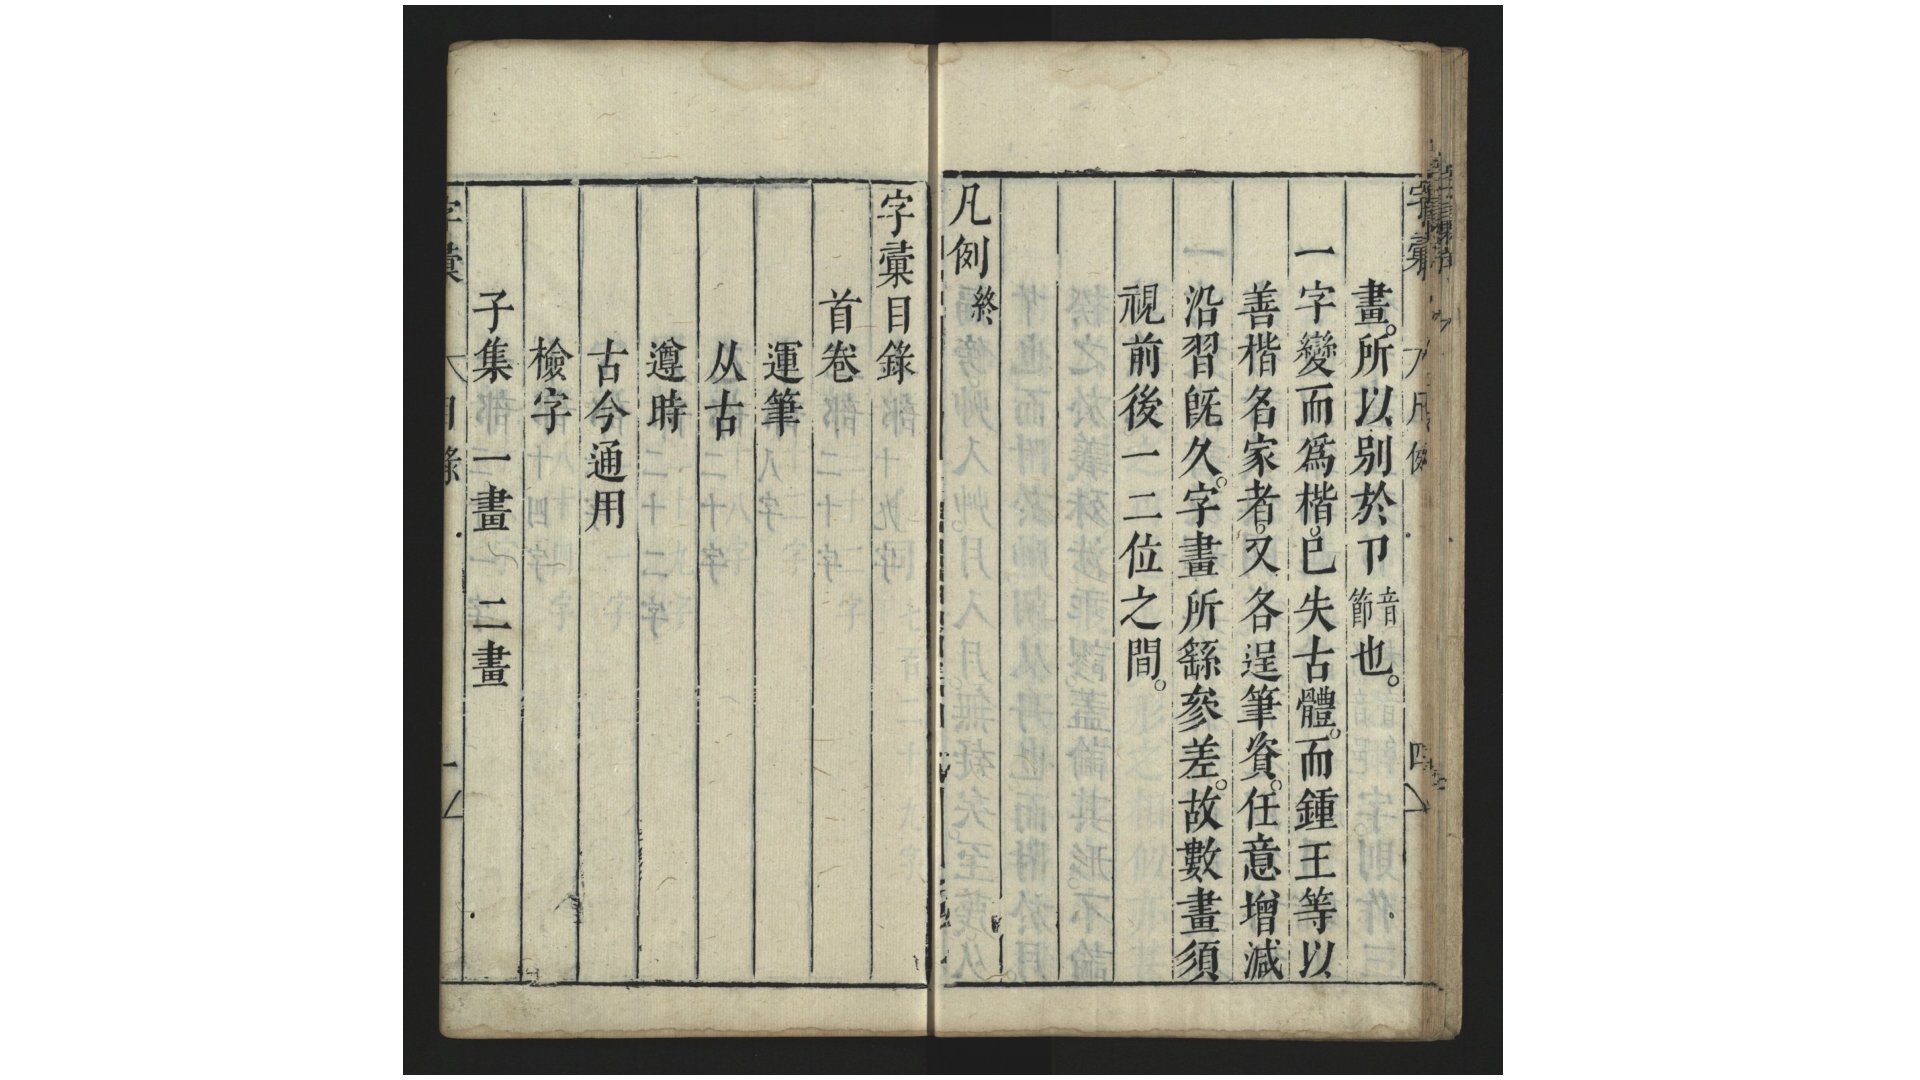 字彙 凡例 四
畫。所以別於卩音節也。
一字變而爲楷。已失古體。而鍾王等以
善楷名家者。又各逞筆資。任意增減
沿習旣久。字畫所繇參差。故數畫須
視前後一二位之間。
凡例終
字彙目錄
首卷
運筆
从古
遵時
古今通用
檢字
子集一畫 二畫
字彙 目錄 一